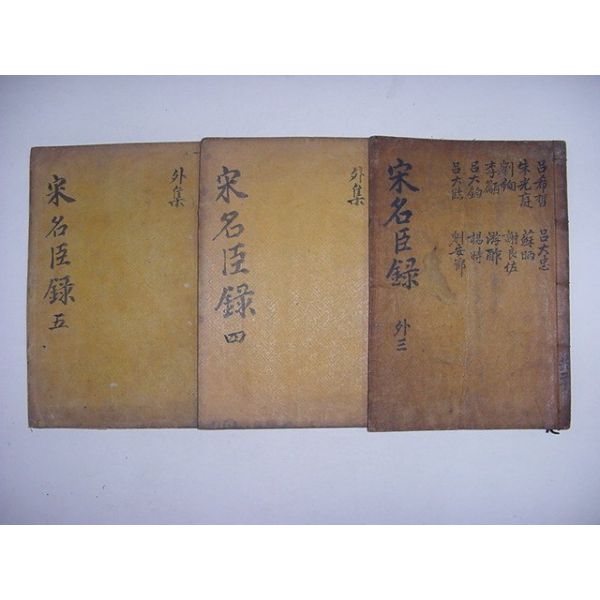 呂希哲 呂大忠
朱光庭 蘇昞
劉絢 謝良佐
李籲 游酢
呂大鈞 楊時
呂大臨 劉安節
宋名臣録 外三
外集
宋名臣録 四
外集
宋名臣録 五